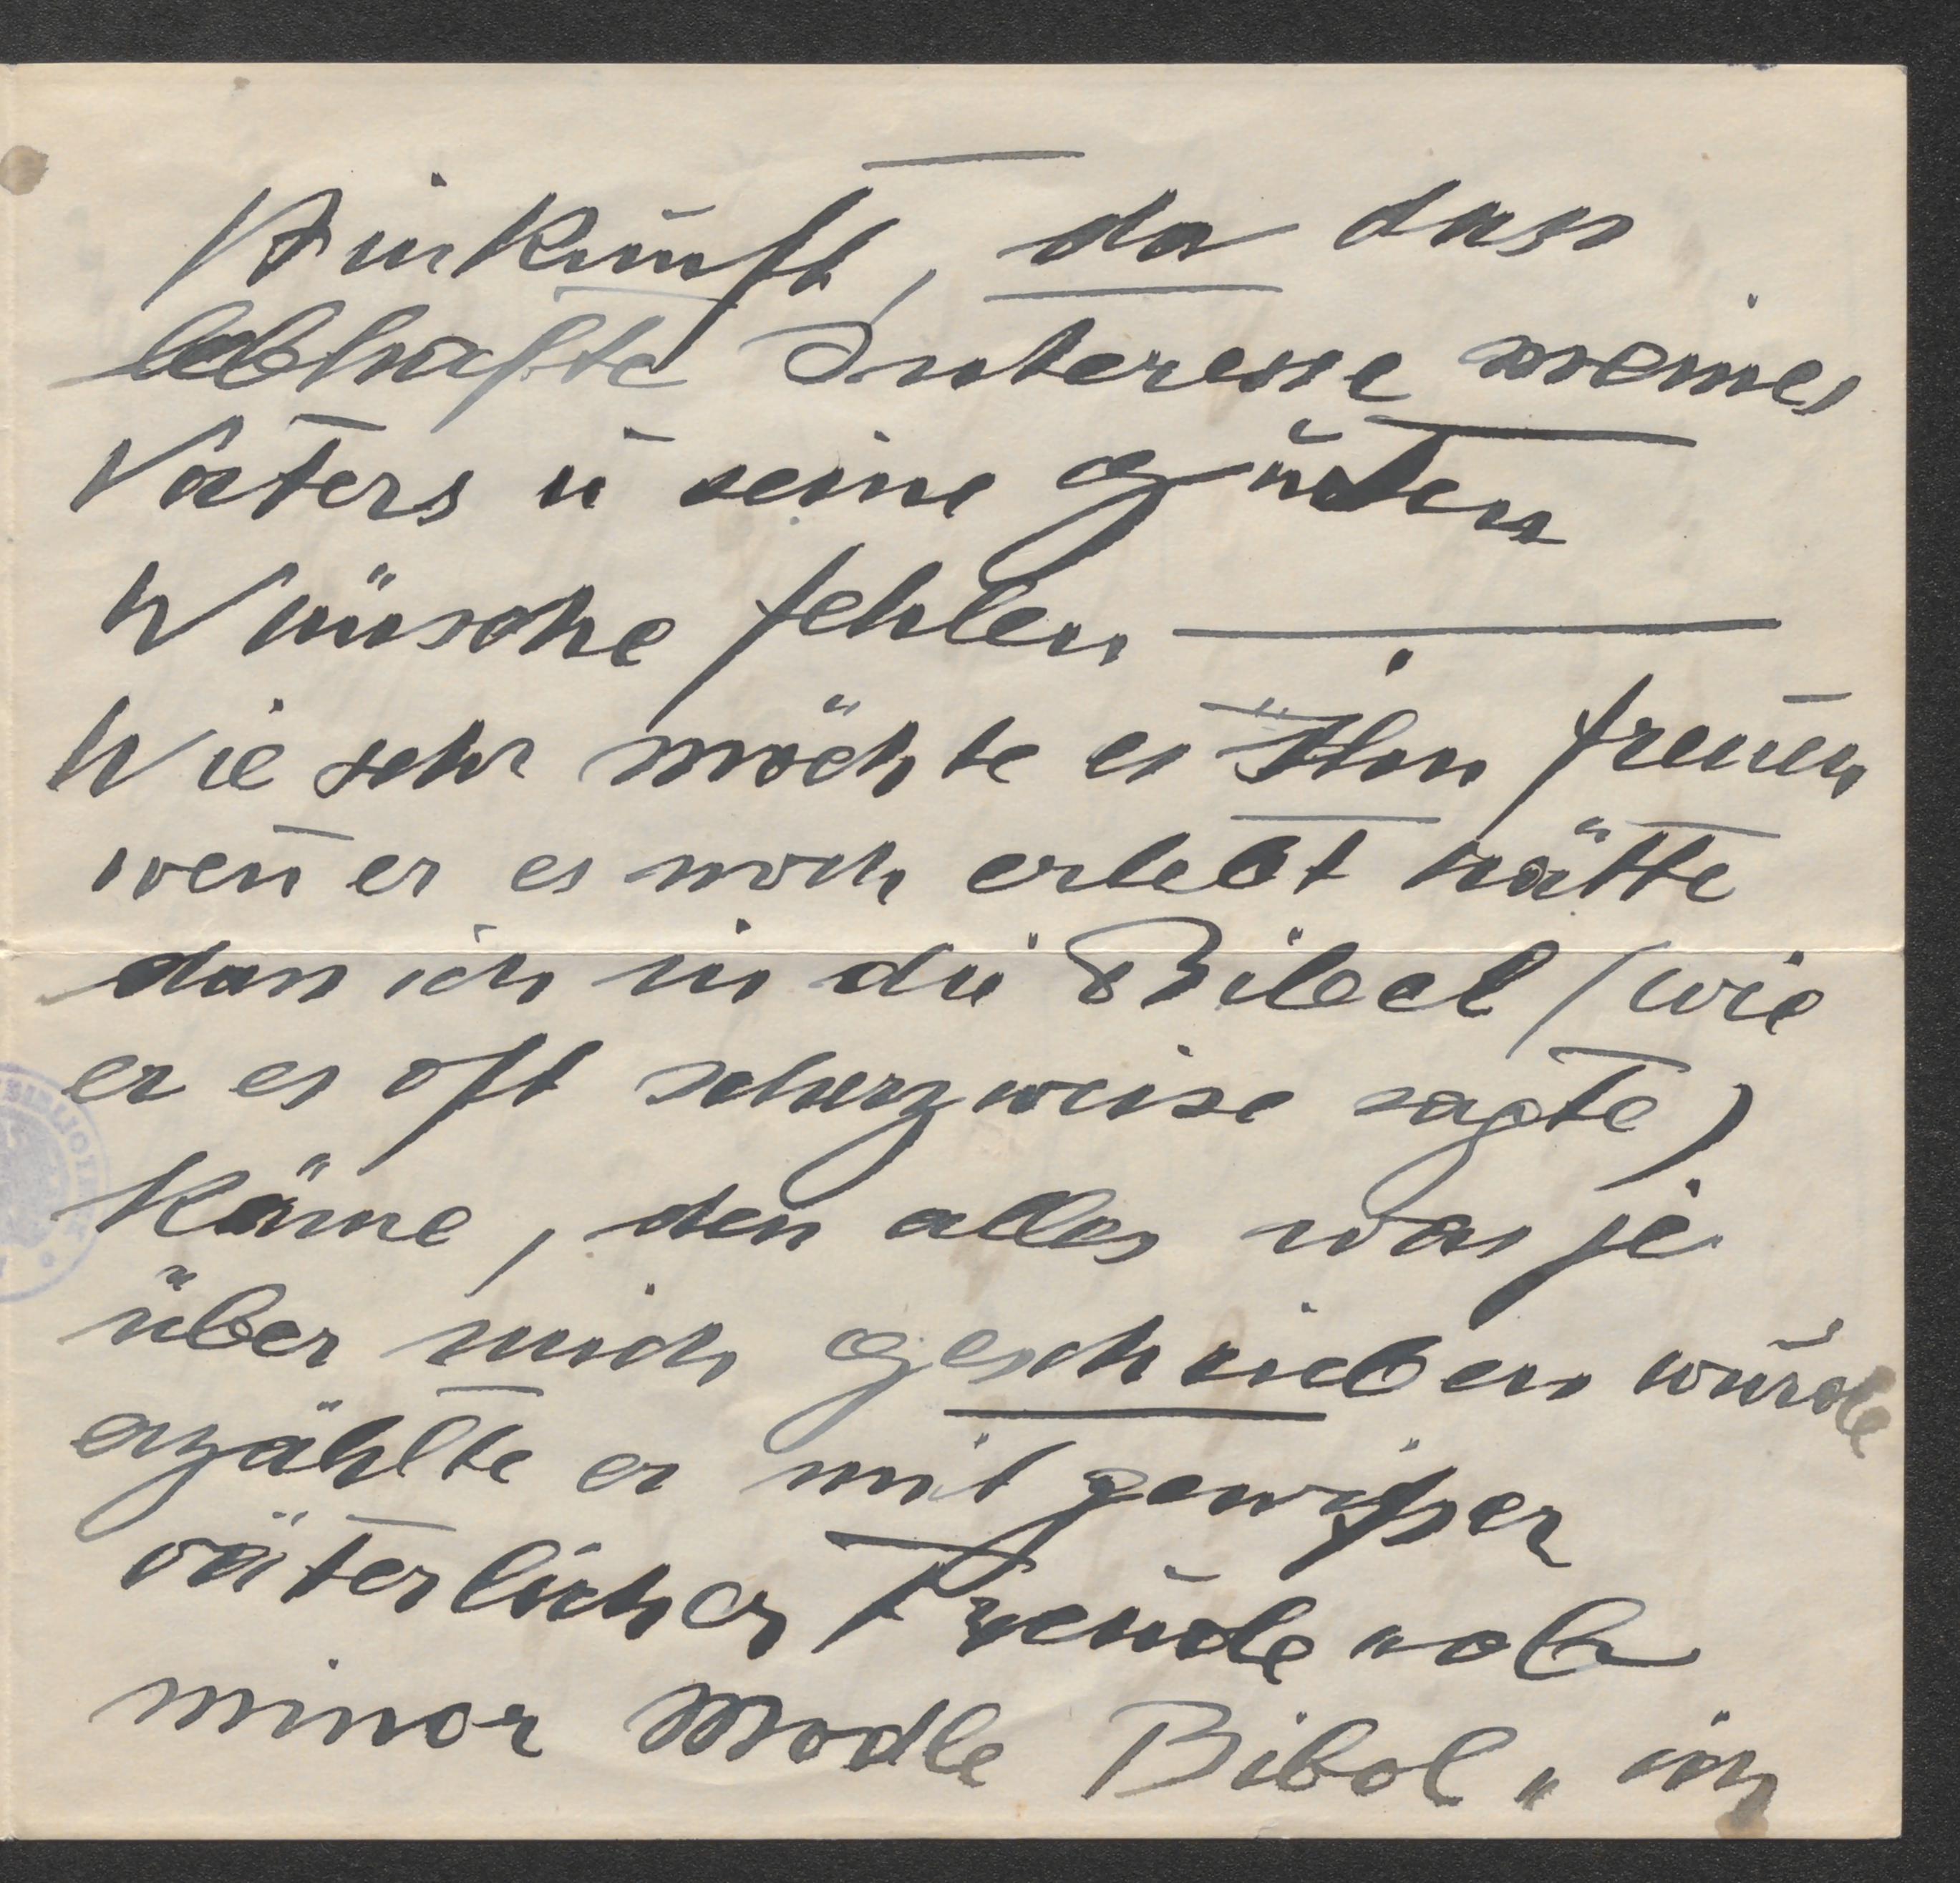 Ankunft, da das
lebhafte Interesse meines
Vaters u seine guten
Wünsche fehlen —
Wie sehr möchte es Ihn freuen
weñ er es noch erlebt hätte
dass ich in die Bibel (wie
er es oft scherzweise sagte)
käme, den alles was je
über mich geschrieben wurde
erzählte er mit gewisser
väterlicher Freude
Bibol " ich
BIBLIOTHEK